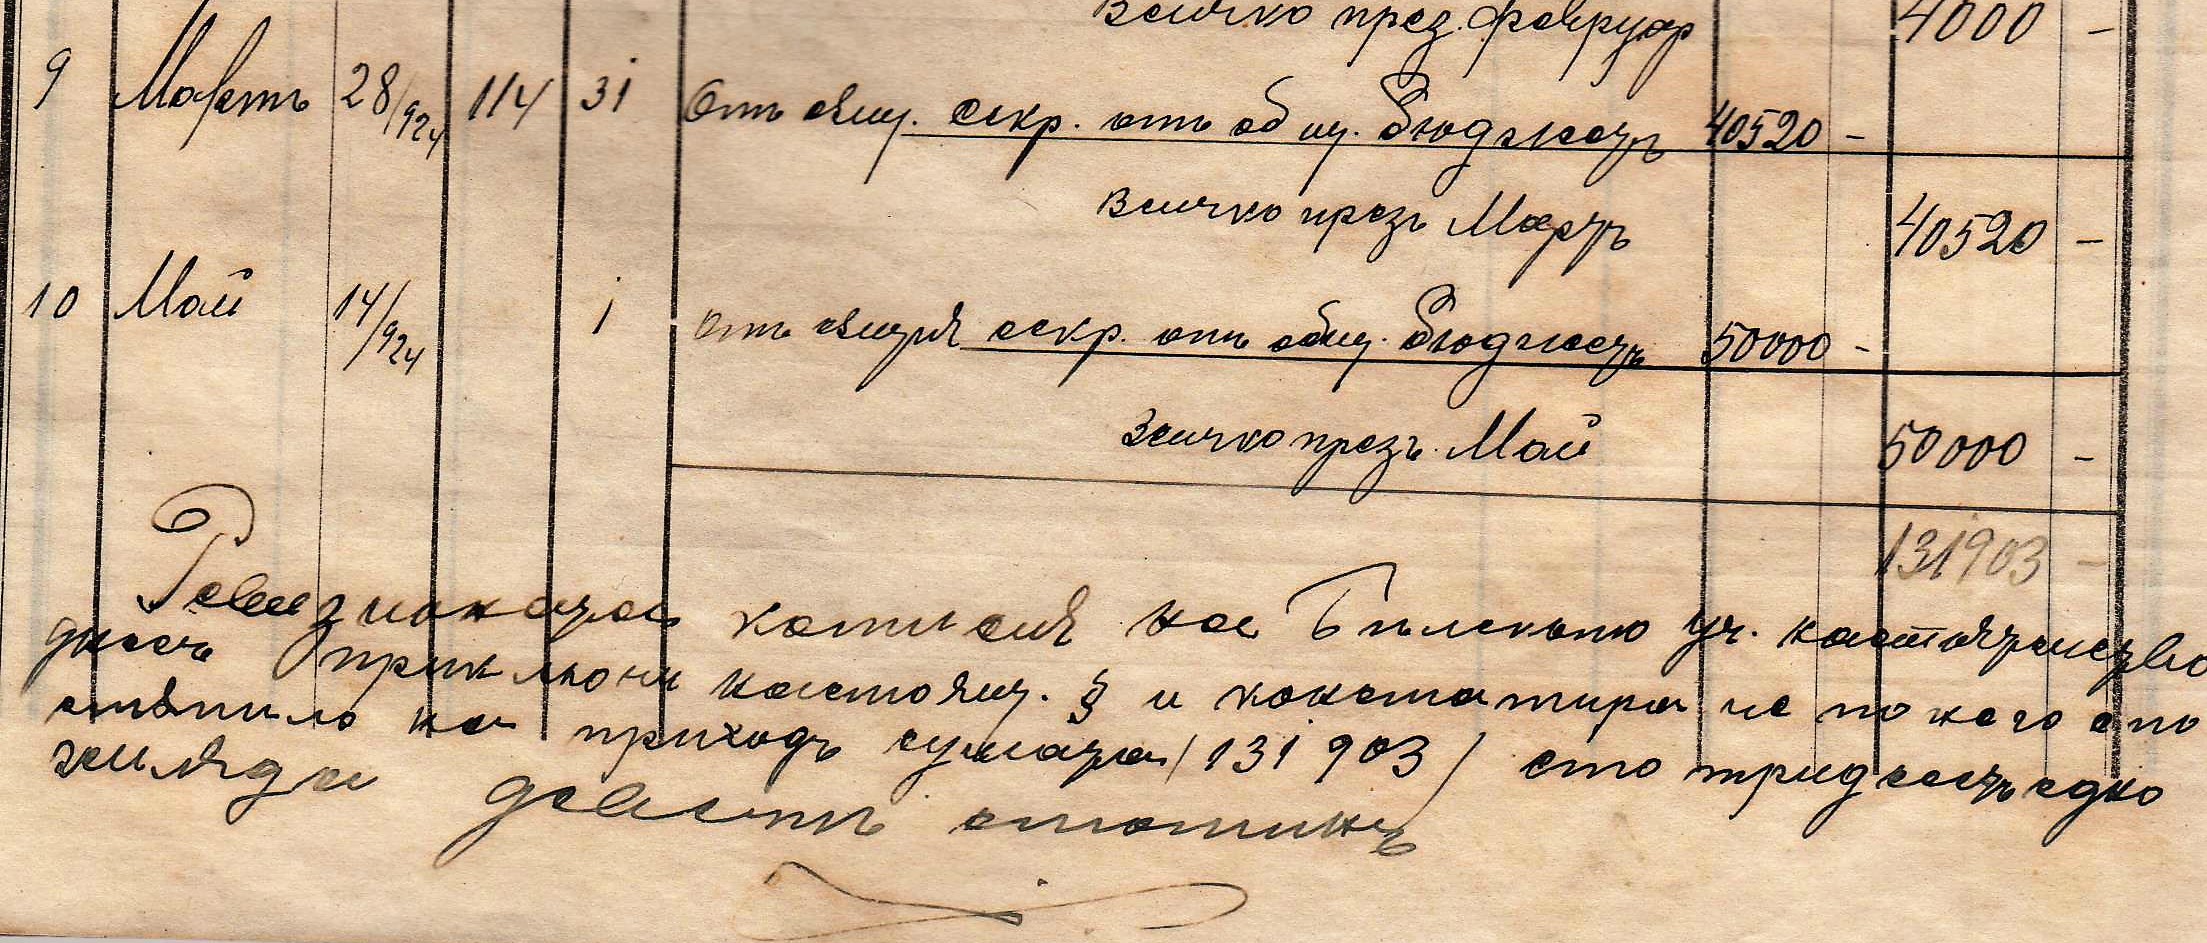 всичко през. февруар 4000 -
9 Мартъ 28/924 114 31 Отъ общ. секр. отъ общ. бюджетъ 40520 -
всичко презъ Мартъ 40520 -
10 Май 14/924 1 отъ общия секр. отъ общ. бюджетъ 50000 -
всичко презъ Май 50000 -
131903 -
Ревизионата комисия на уч. настоятелство
днесъ приключи настоящ. § и констатира че по него е по
стѫпило на приходъ сумата /131903/ сто тридесетъ едно
хиляди деветь стотинъ